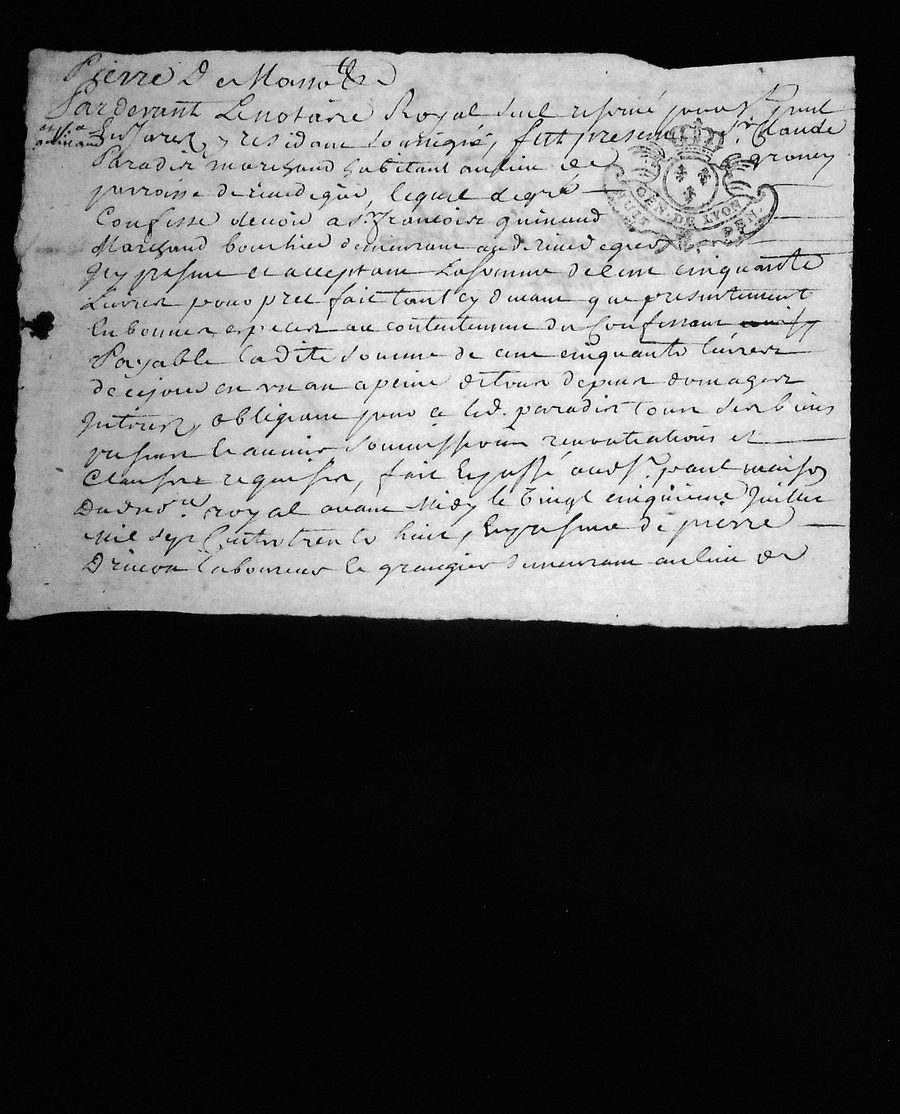 Pierre De
Pardevant Le notaire Royal seul reservé pour St paul
En Jarez y residant soussigné, fut present Sr. Claude
Paradis marchand habitant au lieu de
parroisse de rivedegier, lequel de gré
Confesse devoir a sr. françois guinand
Marchand boucher demeurant au de rivedegier
Icy present et acceptant La somme de cent cinquante
Livres pour pret fait tant cy devant que presentement
En bonnes especes au contentement du Confessant
Payable la dite somme de cent cinquante livres
de ce jour en un an a peine de tous depens domages
Interest, obligeant pour ce led. paradis tous ses biens
presents et avenir soumissions renontiations et
Clauses requises, fait et passé aud St. paul maison
Dud no.re royal avant Midy le Vingt cinquieme Juillet
Mil sept Cents trente huit, En presence de pierre
laboureur et grangier demeurant au lieu de
GEN. DE LYON
HUIT DEN.